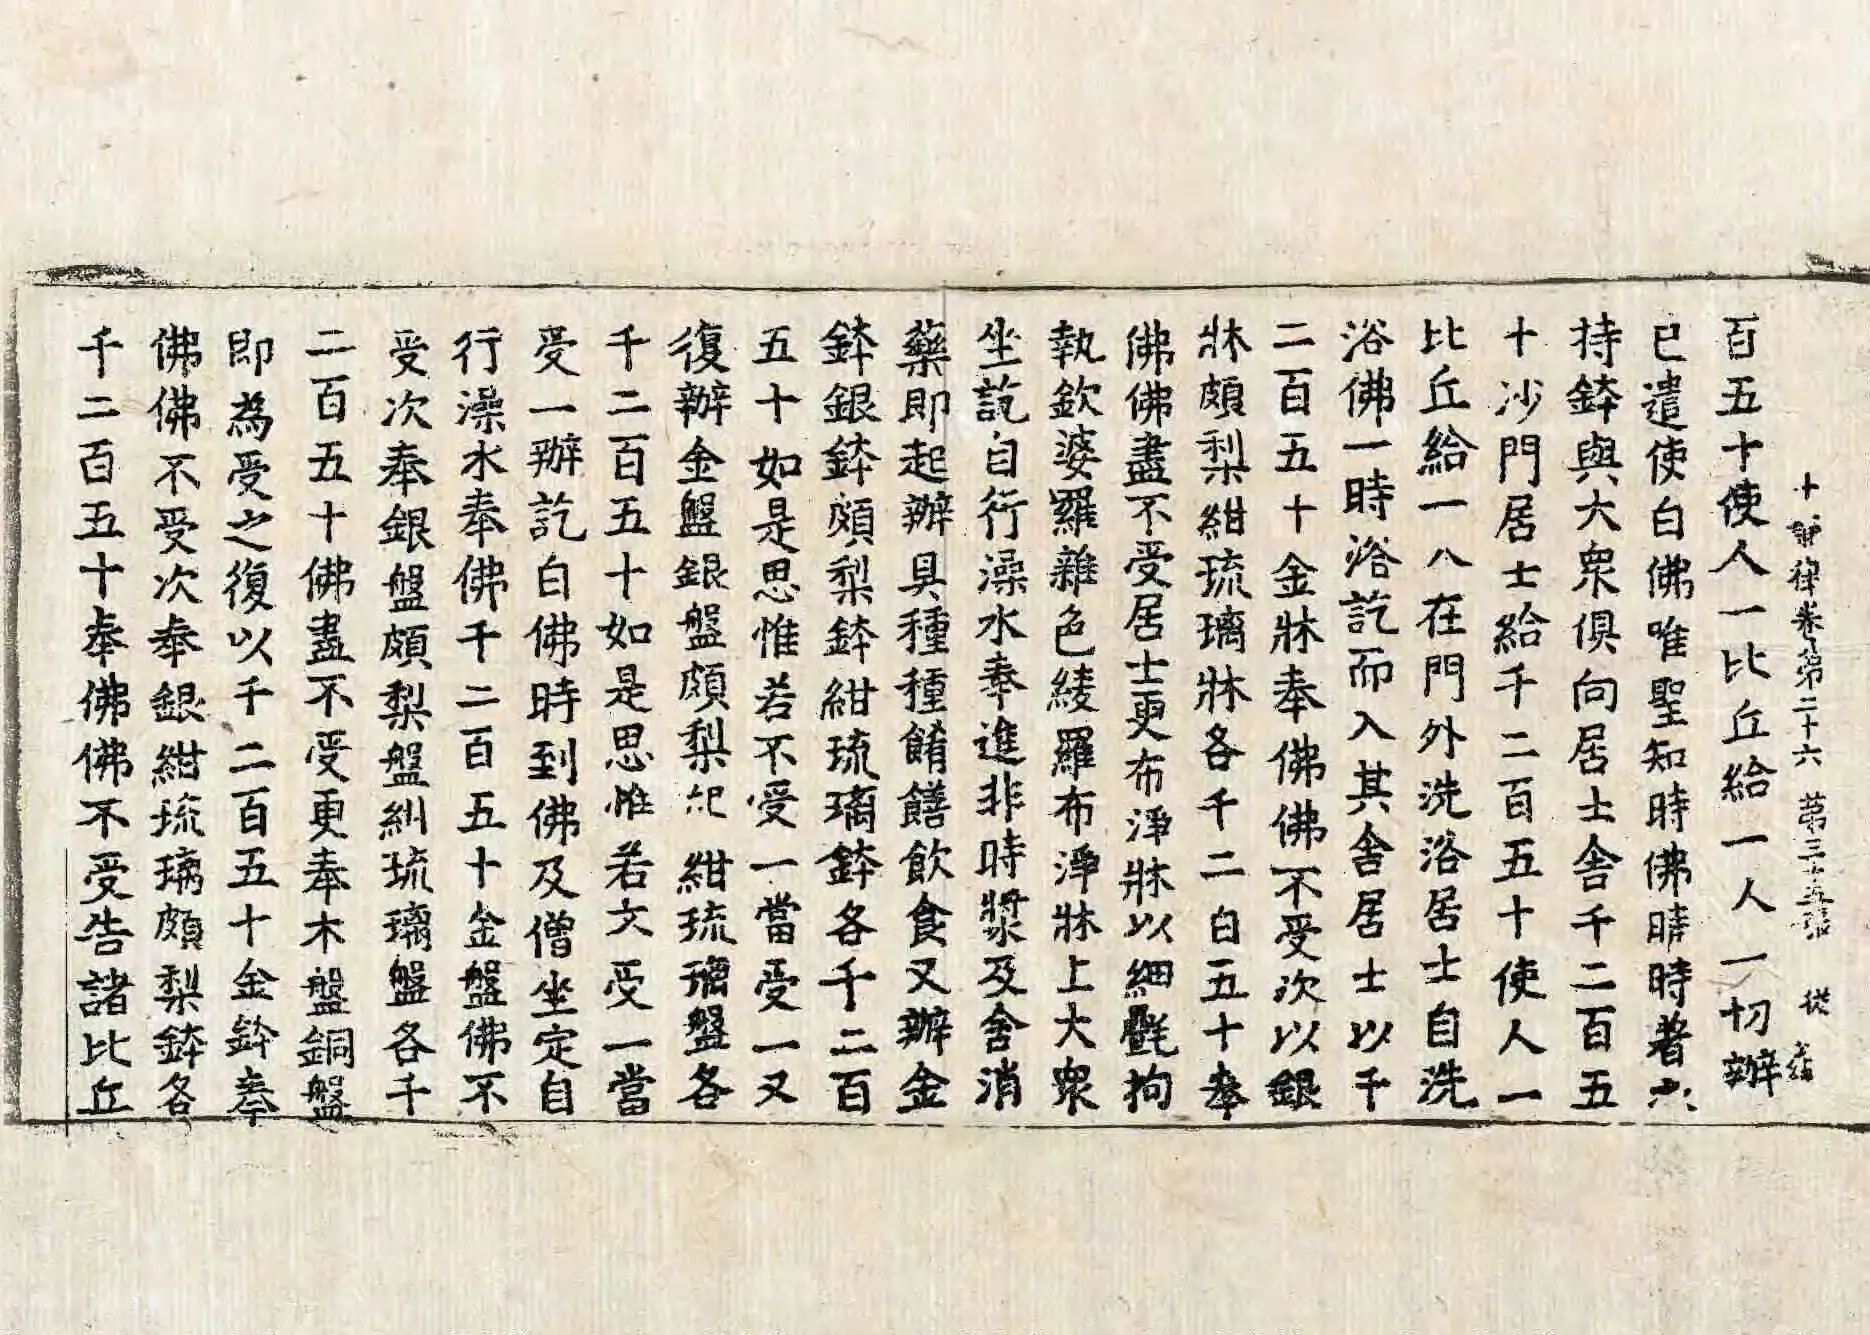 十誦律卷第二十六 第三十五張 從
百五十使人一比丘給一人一切辦
已遣使白佛唯聖知時佛時時著衣
持鉢與大衆俱向居士舍千二百五
十沙門居士給千二百五十使人一
比丘給一人在門外洗浴居士自洗
浴佛一時浴訖而入其舍居士以千
二百五十金牀奉佛佛不受次以銀
牀頗梨紺琉璃牀各千二百五十奉
佛佛盡不受居士更布淨牀以細㲲拘
執欽婆羅雜色綾羅布淨牀上大衆
坐訖自行澡水奉進非時漿及舍消
藥即起辦具種種餚饍飲食又辦金
鉢銀鉢頗梨鉢紺琉璃鉢各千二百
五十如是思惟若不受一當受一又
復辦金盤銀盤頗梨 紺琉璃盤各
千二百五十如是思惟若不受一當
受一辦訖白佛時到佛及僧坐定自
行澡水奉佛千二百五十金盤佛不
受次奉銀盤頗梨盤紺琉璃盤各千
二百五十佛盡不受更奉木盤銅盤
即為受之復以千二百五十金鉢奉
佛佛不受次奉銀紺琉璃頗梨鉢各
千二百五十奉佛佛不受告諸比丘